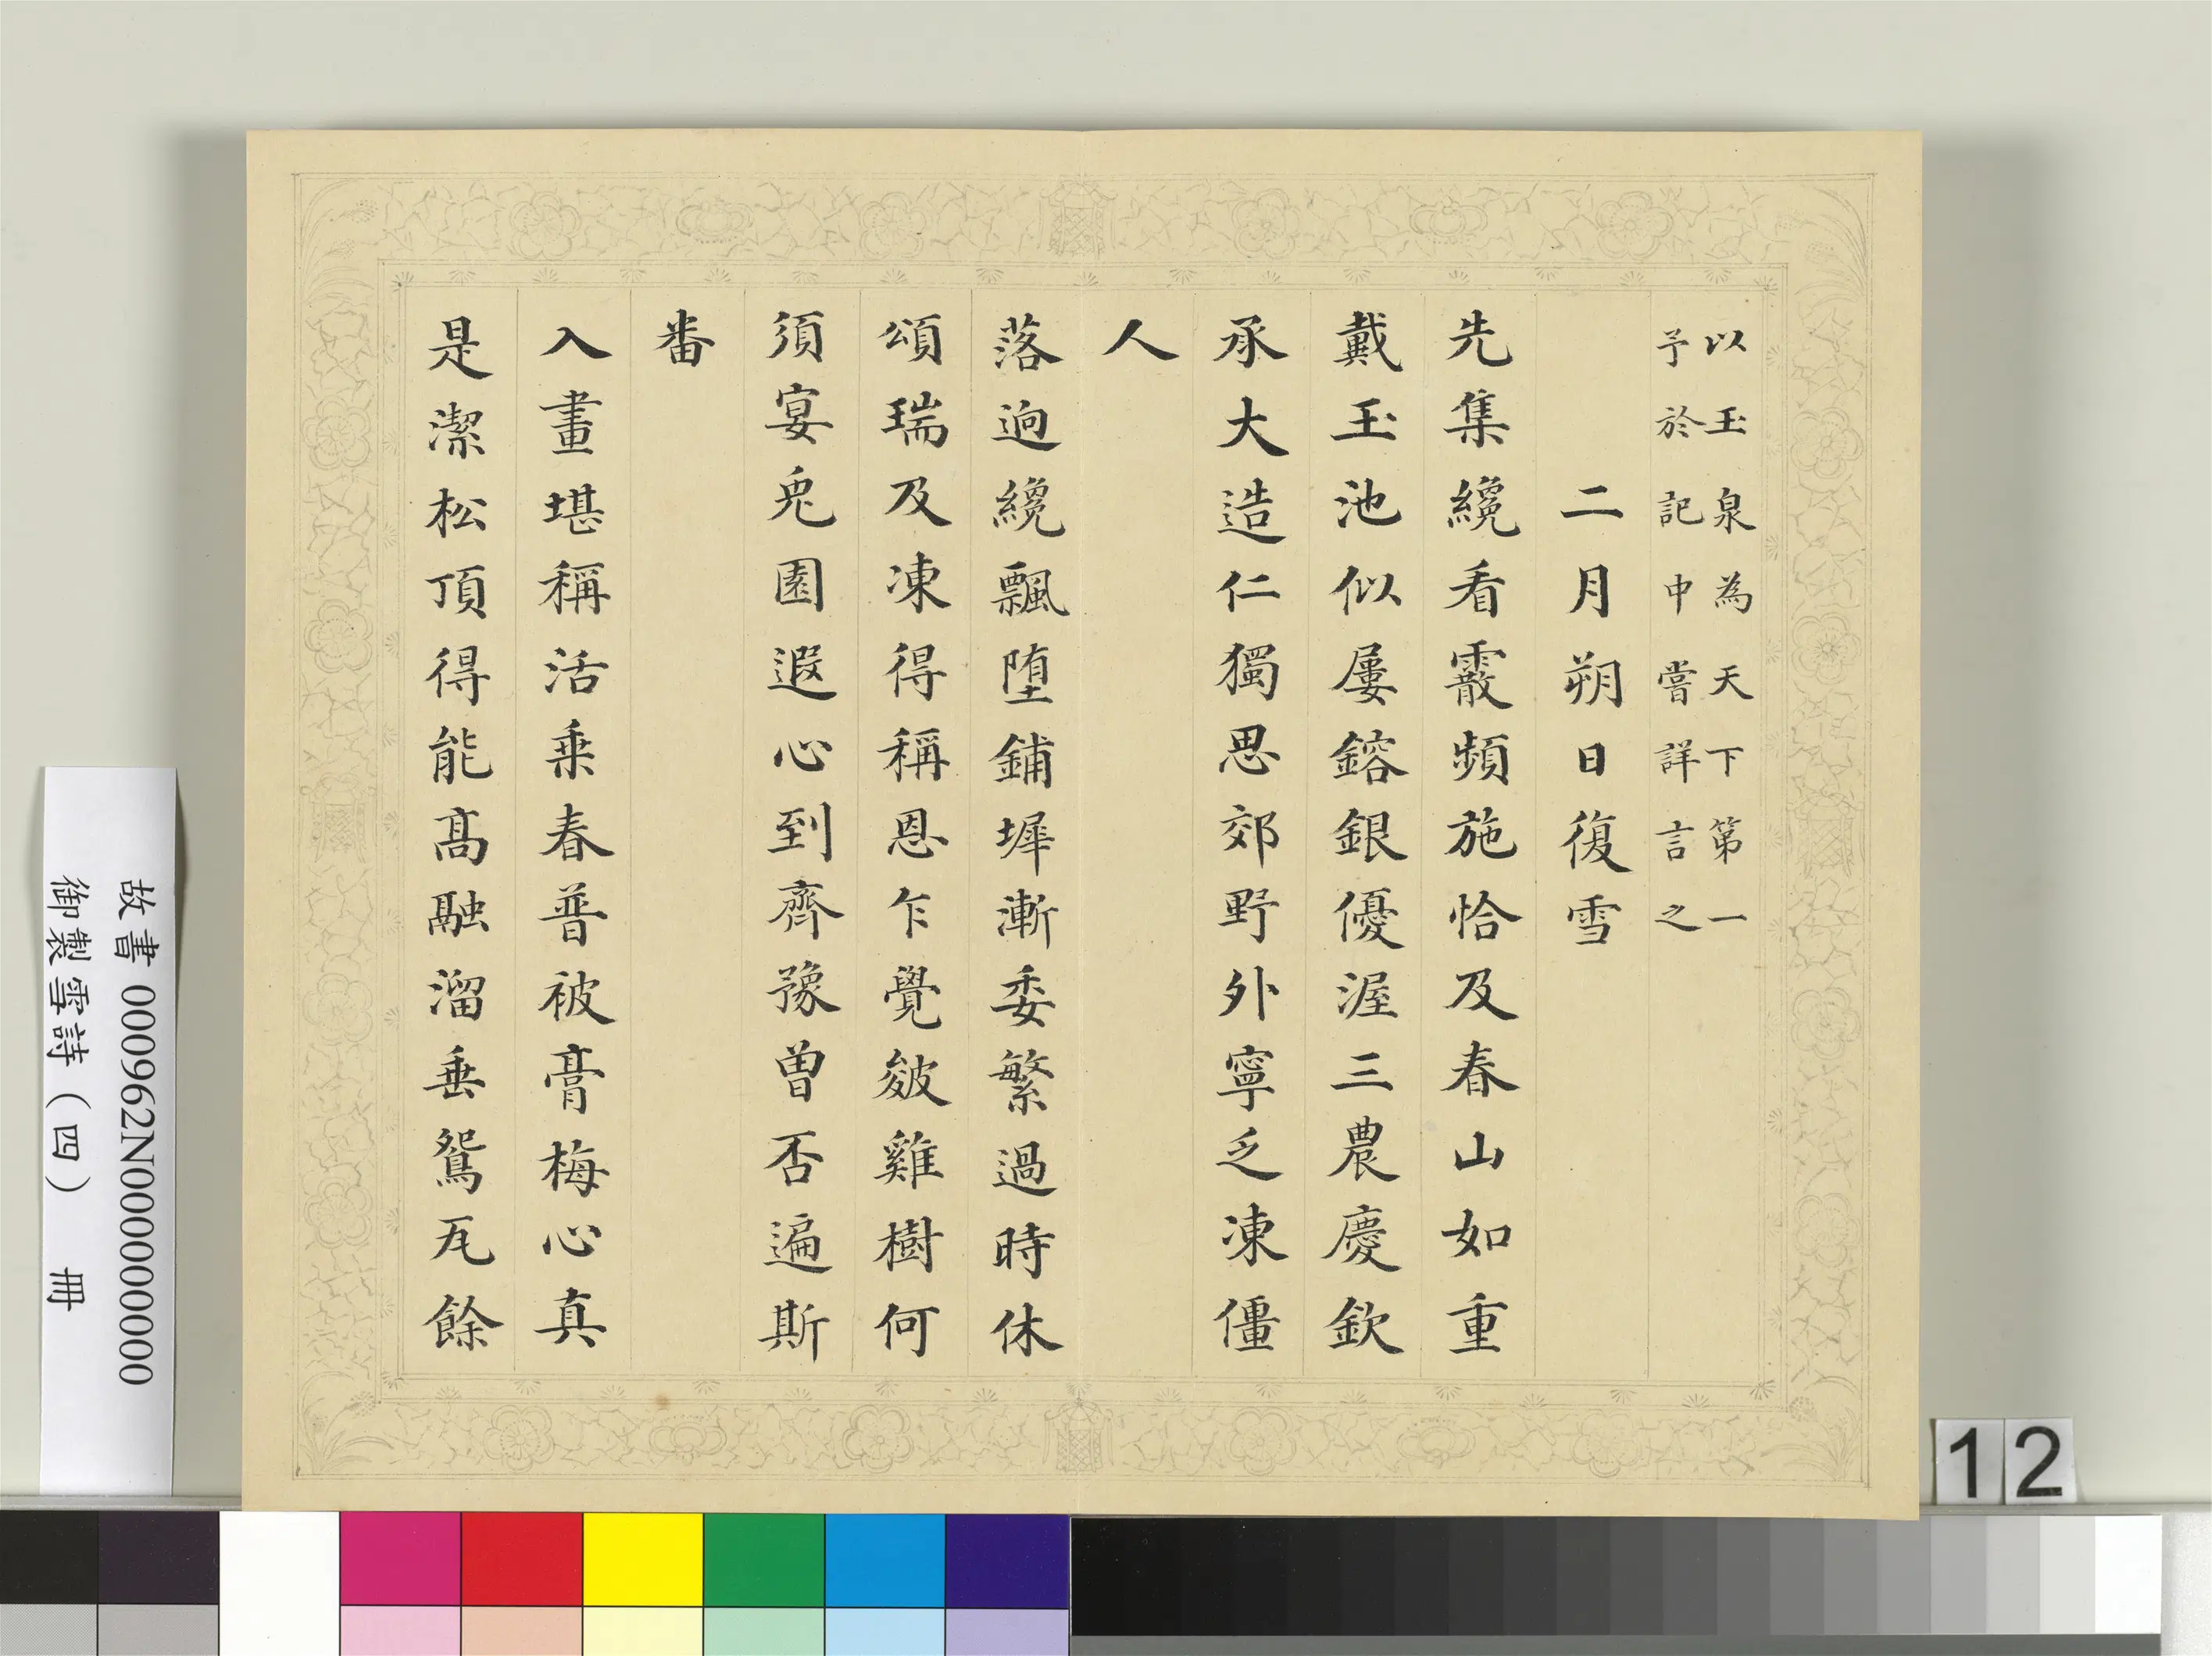 以玉泉為天下第一
予於記中嘗詳言之
二月朔日復雪
先集纔看霰頻施恰及春山如重
戴玉池似屢鎔銀優渥三農慶欽
承大造仁獨思郊野外寧乏凍僵
人
落逈纔飄墮鋪墀漸委繁過時休
頌瑞及凍得稱恩乍覺皴雞樹何
須宴兎園遐心到齊豫曽否遍斯
番
入畫堪稱活乗春普被膏梅心真
是潔松頂得能髙融溜垂鴛瓦餘
故書 000962N000000000
御製雪詩（四） 冊
12